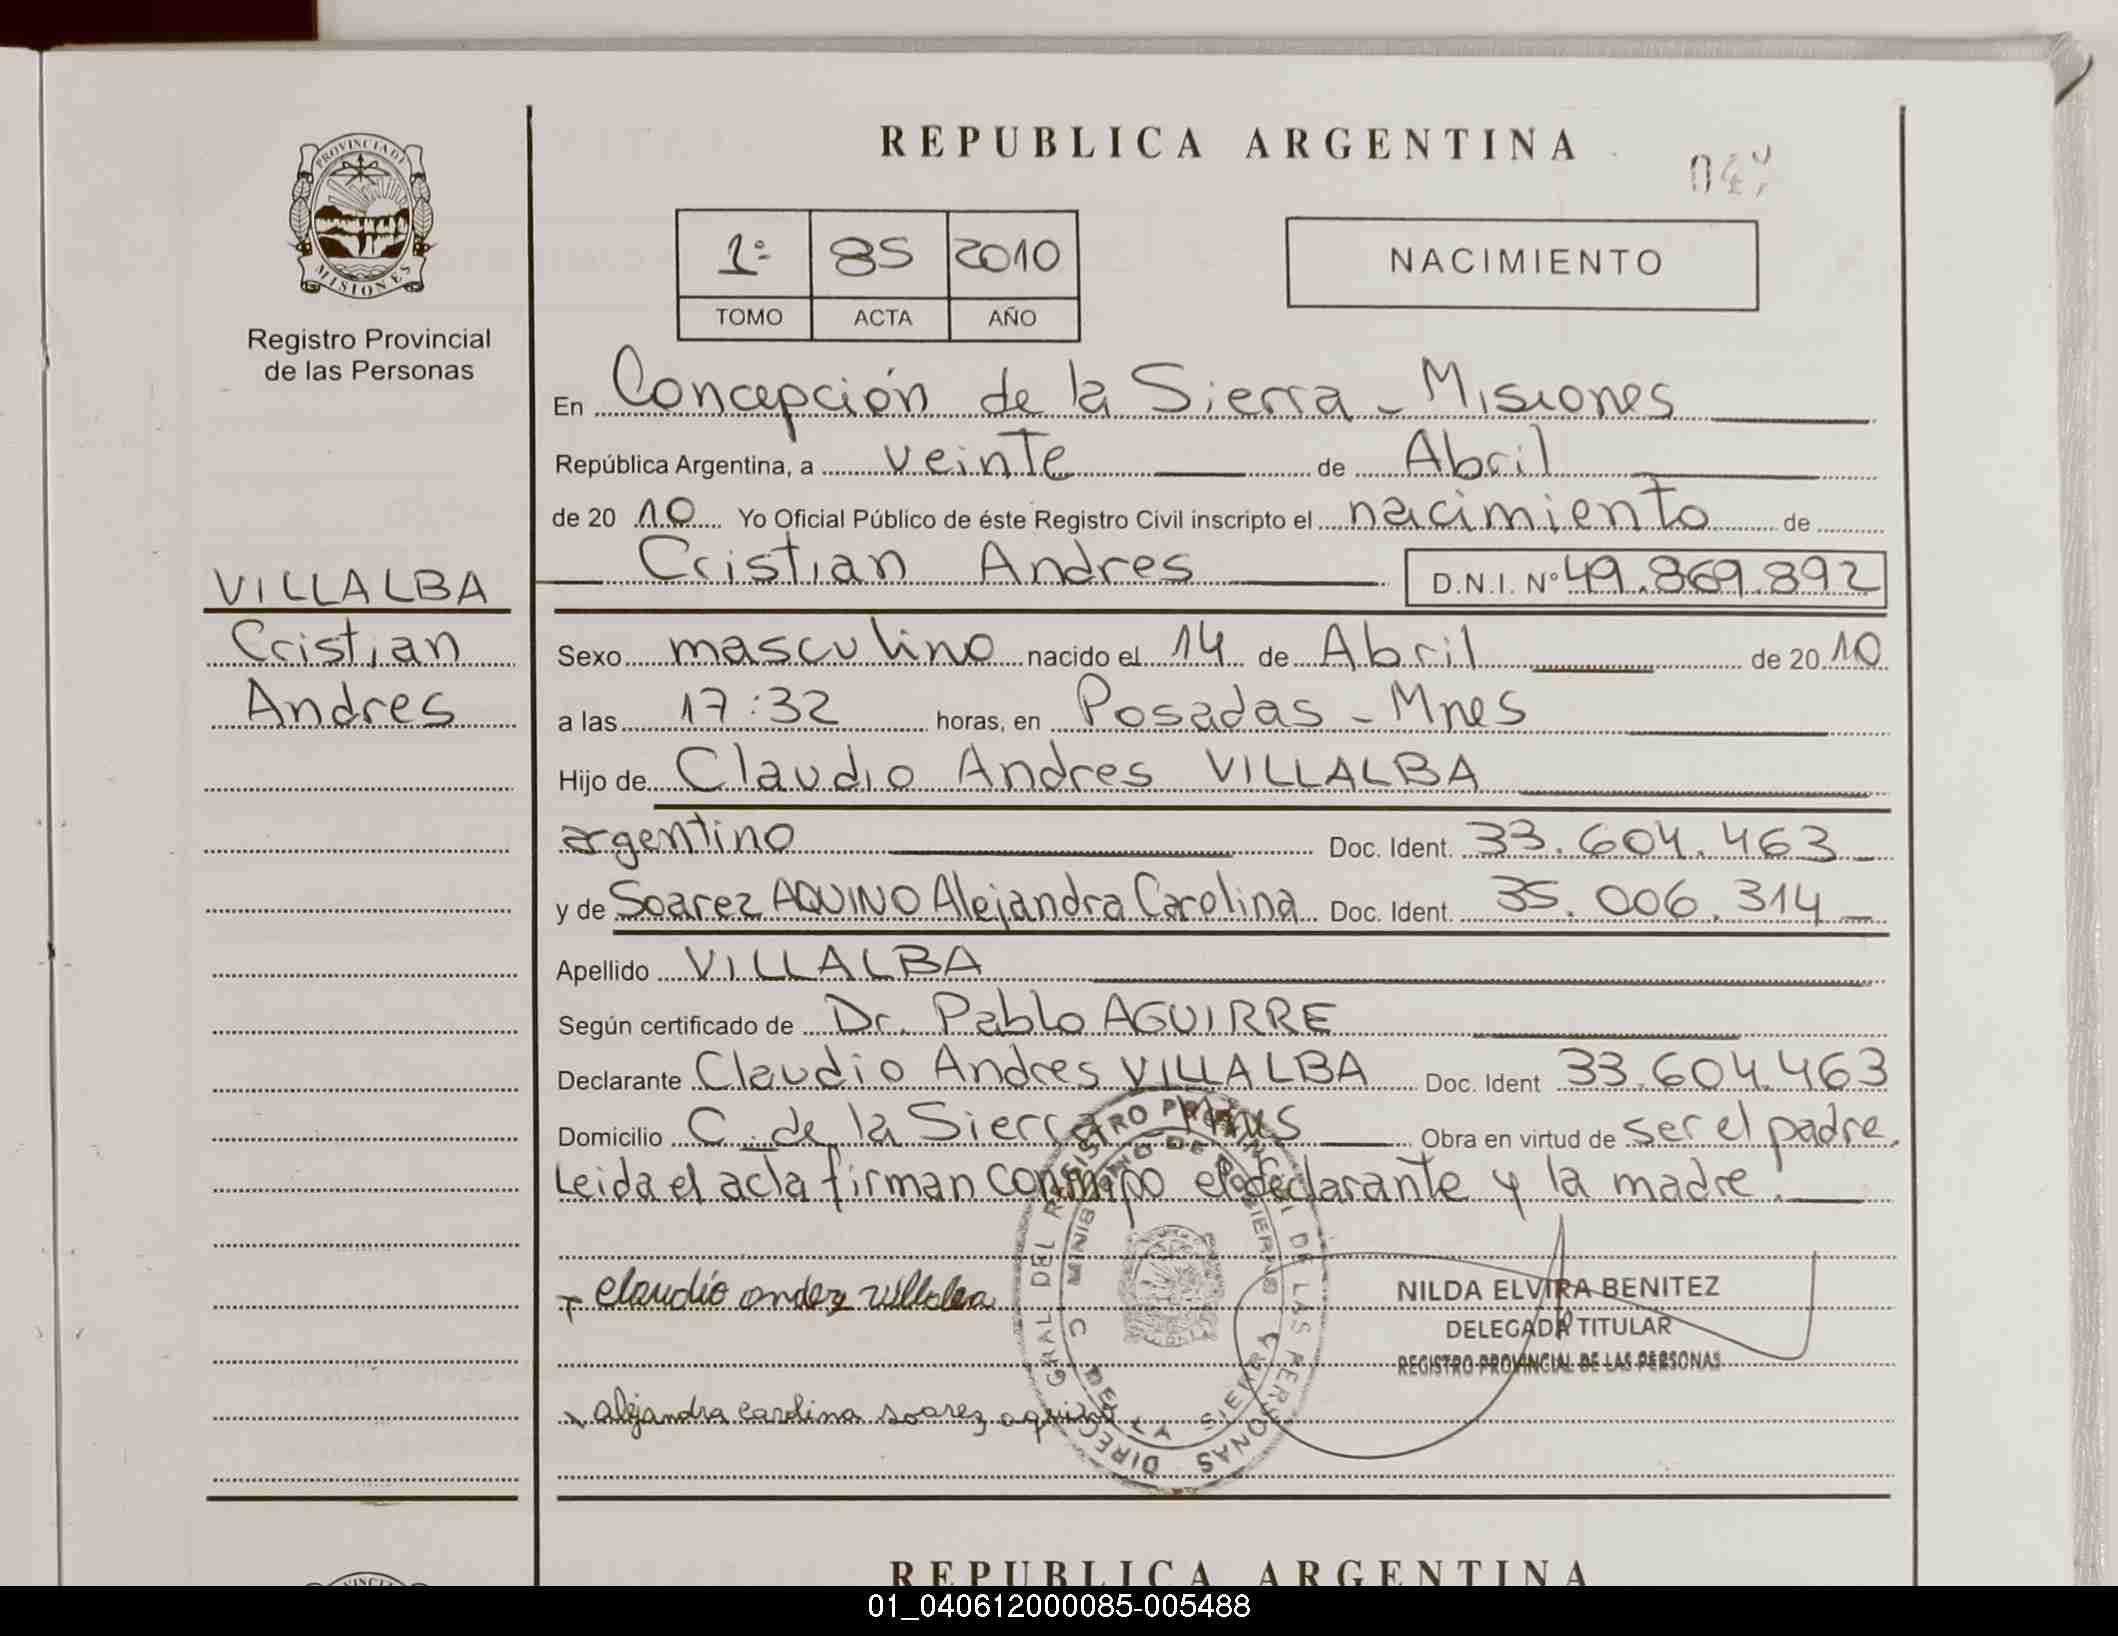 REPUBLICA ARGENTINA
PROVINCIA DE
MISIONES
Registro Provincial
de las Personas
1º 85 2010
TOMO ACTA AÑO
NACIMIENTO
En Concepción de la Sierra - Misiones
República Argentina, a veinte de Abril
de 20 10 Yo Oficial Público de éste Registro Civil inscripto el nacimiento de
Cristian Andres D.N.I. Nº 49.869.892
VILLALBA
Cristian
Andres
Sexo masculino nacido el 14 de Abril de 20 10
a las 17:32 horas, en Posadas - Mnes
Hijo de Claudio Andres VILLALBA
argentino Doc. Ident. 33.604.463
y de Soarez AQUINO Alejandra Carolina Doc. Ident. 35.006.314
Apellido VILLALBA
Según certificado de Dr. Pablo AGUIRRE
Declarante Claudio Andres VILLALBA Doc. Ident 33.604.463
Domicilio C. de la Sierra Mnes Obra en virtud de ser el padre.
Leida el acta firman conmigo el declarante y la madre.
claudio andez villalba
NILDA ELVIRA BENITEZ
DELEGADA TITULAR
REGISTRO PROVINCIAL DE LAS PERSONAS
alejandra carolina soarez aquino
DIRECC. GRAL DEL REGISTRO PROVINCIAL DE LAS PERSONAS
MINISTERIO DE GOBIERNO
C DE LA SIERRA
REPUBLICA ARGENTINA
01_040612000085-005488